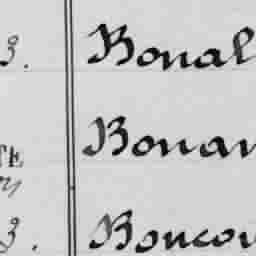 3. Bonal
Bonan
TE
3. Boncou